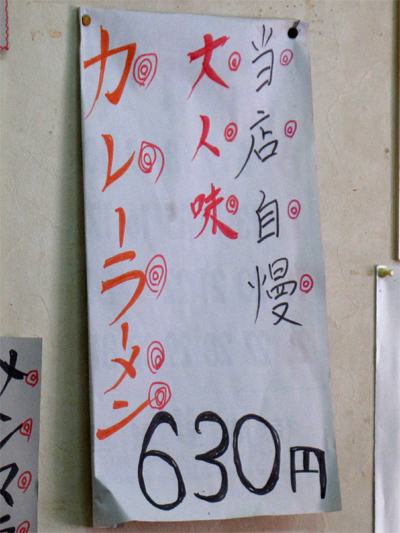 当店自慢
大人味
カレーラーメン
630円
メンマ